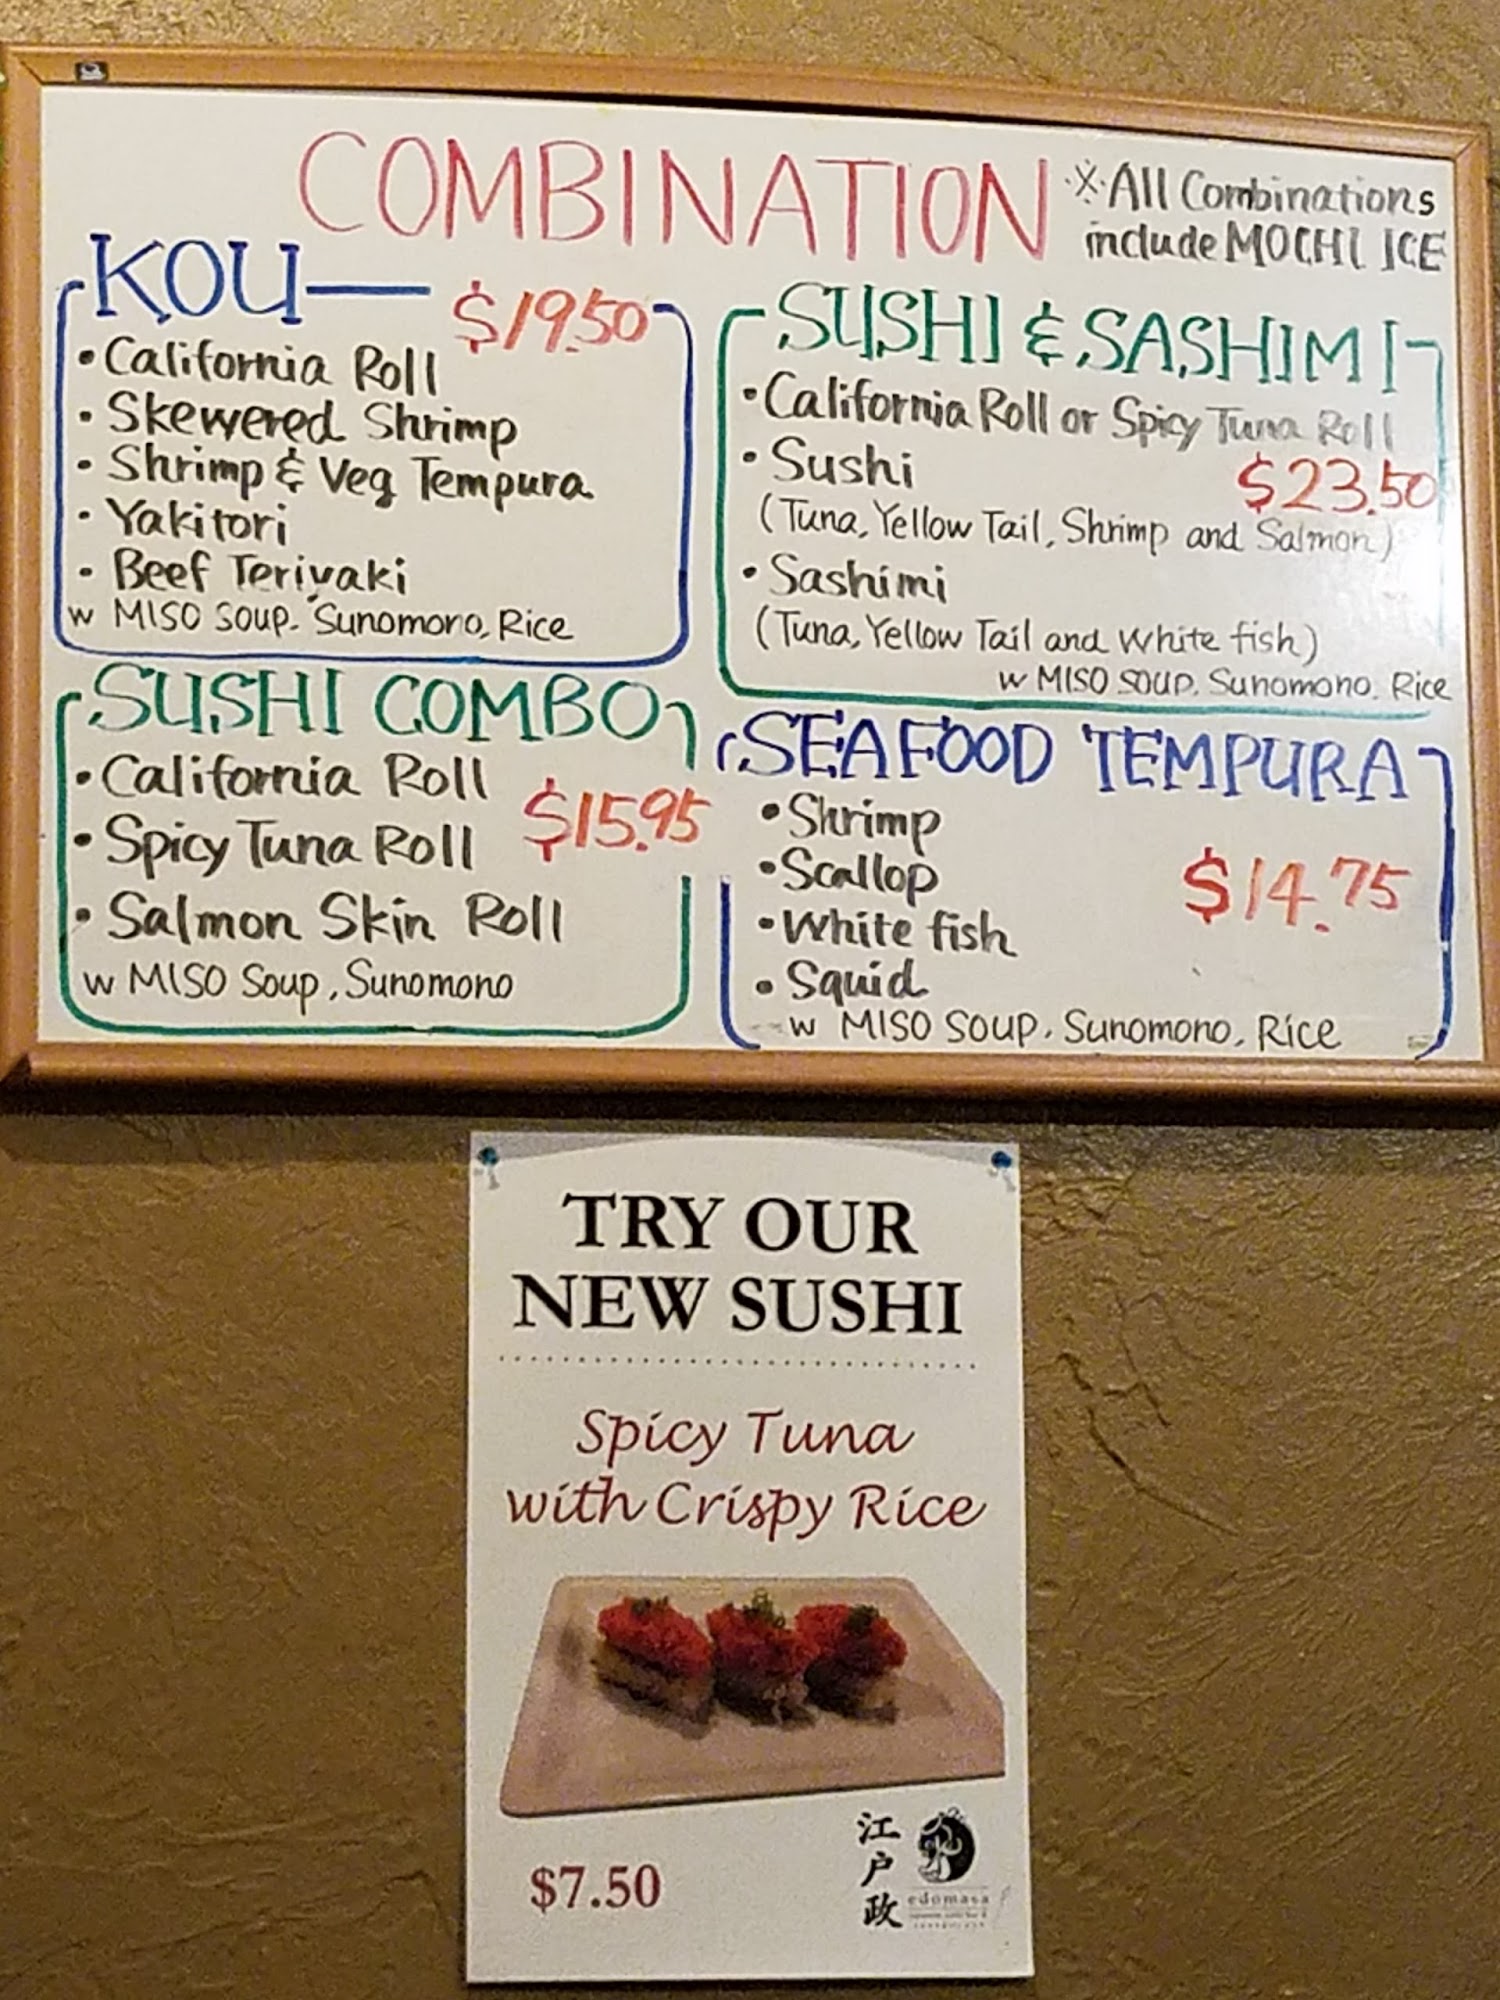 COMBINATION
※All Combinations
include MOCHI ICE
KOU
$19.50
• California Roll
• Skewered Shrimp
• Shrimp & Veg Tempura
• Yakitori
• Beef Teriyaki
w MISO SOUP. Sunomono, Rice
SUSHI & SASHIMI
• California Roll or Spicy Tuna Roll
• Sushi
$23.50
(Tuna, Yellow Tail, Shrimp and Salmon)
• Sashimi
(Tuna, Yellow Tail and White fish)
w MISO SOUP. Sunomono. Rice
SUSHI COMBO
• California Roll
$15.95
• Spicy Tuna Roll
• Salmon Skin Roll
w MISO Soup, Sunomono
SEAFOOD TEMPURA
• Shrimp
• Scallop
$14.75
• White fish
• Squid
w MISO SOUP. Sunomono, Rice
TRY OUR
NEW SUSHI
Spicy Tuna
with Crispy Rice
$7.50
江戸政
edomasa